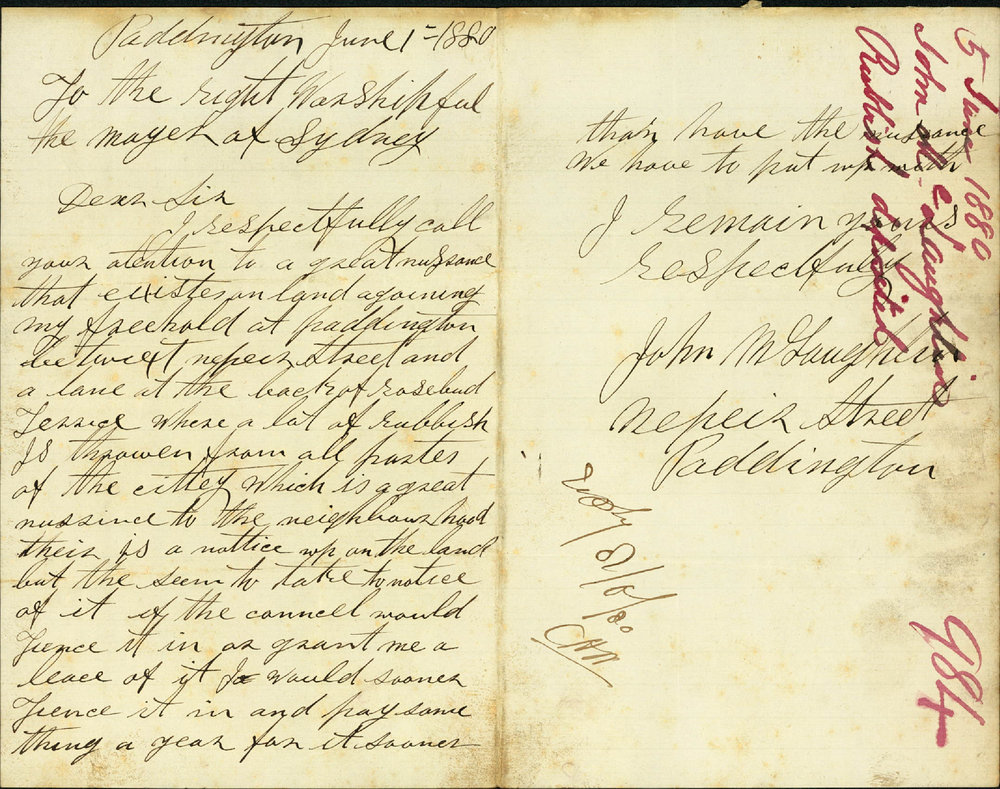 Paddington June 1 = 1880
To the right Warshipful
the mayer of Sydney
Dear Sir
I respectfully call
your atention to a great nussance
that existes on land agoining
my freehold at paddington
betwixt nepeir Street and
a lane at the back of rosebud
Terrice where a lot of rubbish
Is throwen from all partes
of the cittey which is a great
nussince to the neighbour hood
their is a nottice up on the land
but the seem to take to notice
of it if the councel would
fence it in or grant me a
leace of it I would sooner
fence it in and pay some
thing a year for it sooner
than have the nussance
we have to put up with
I remain yours
respectfully
John McLaughlin
nepeir Street
Paddington
5 June 1880
John McLaughlin
Rubbish deposited
984